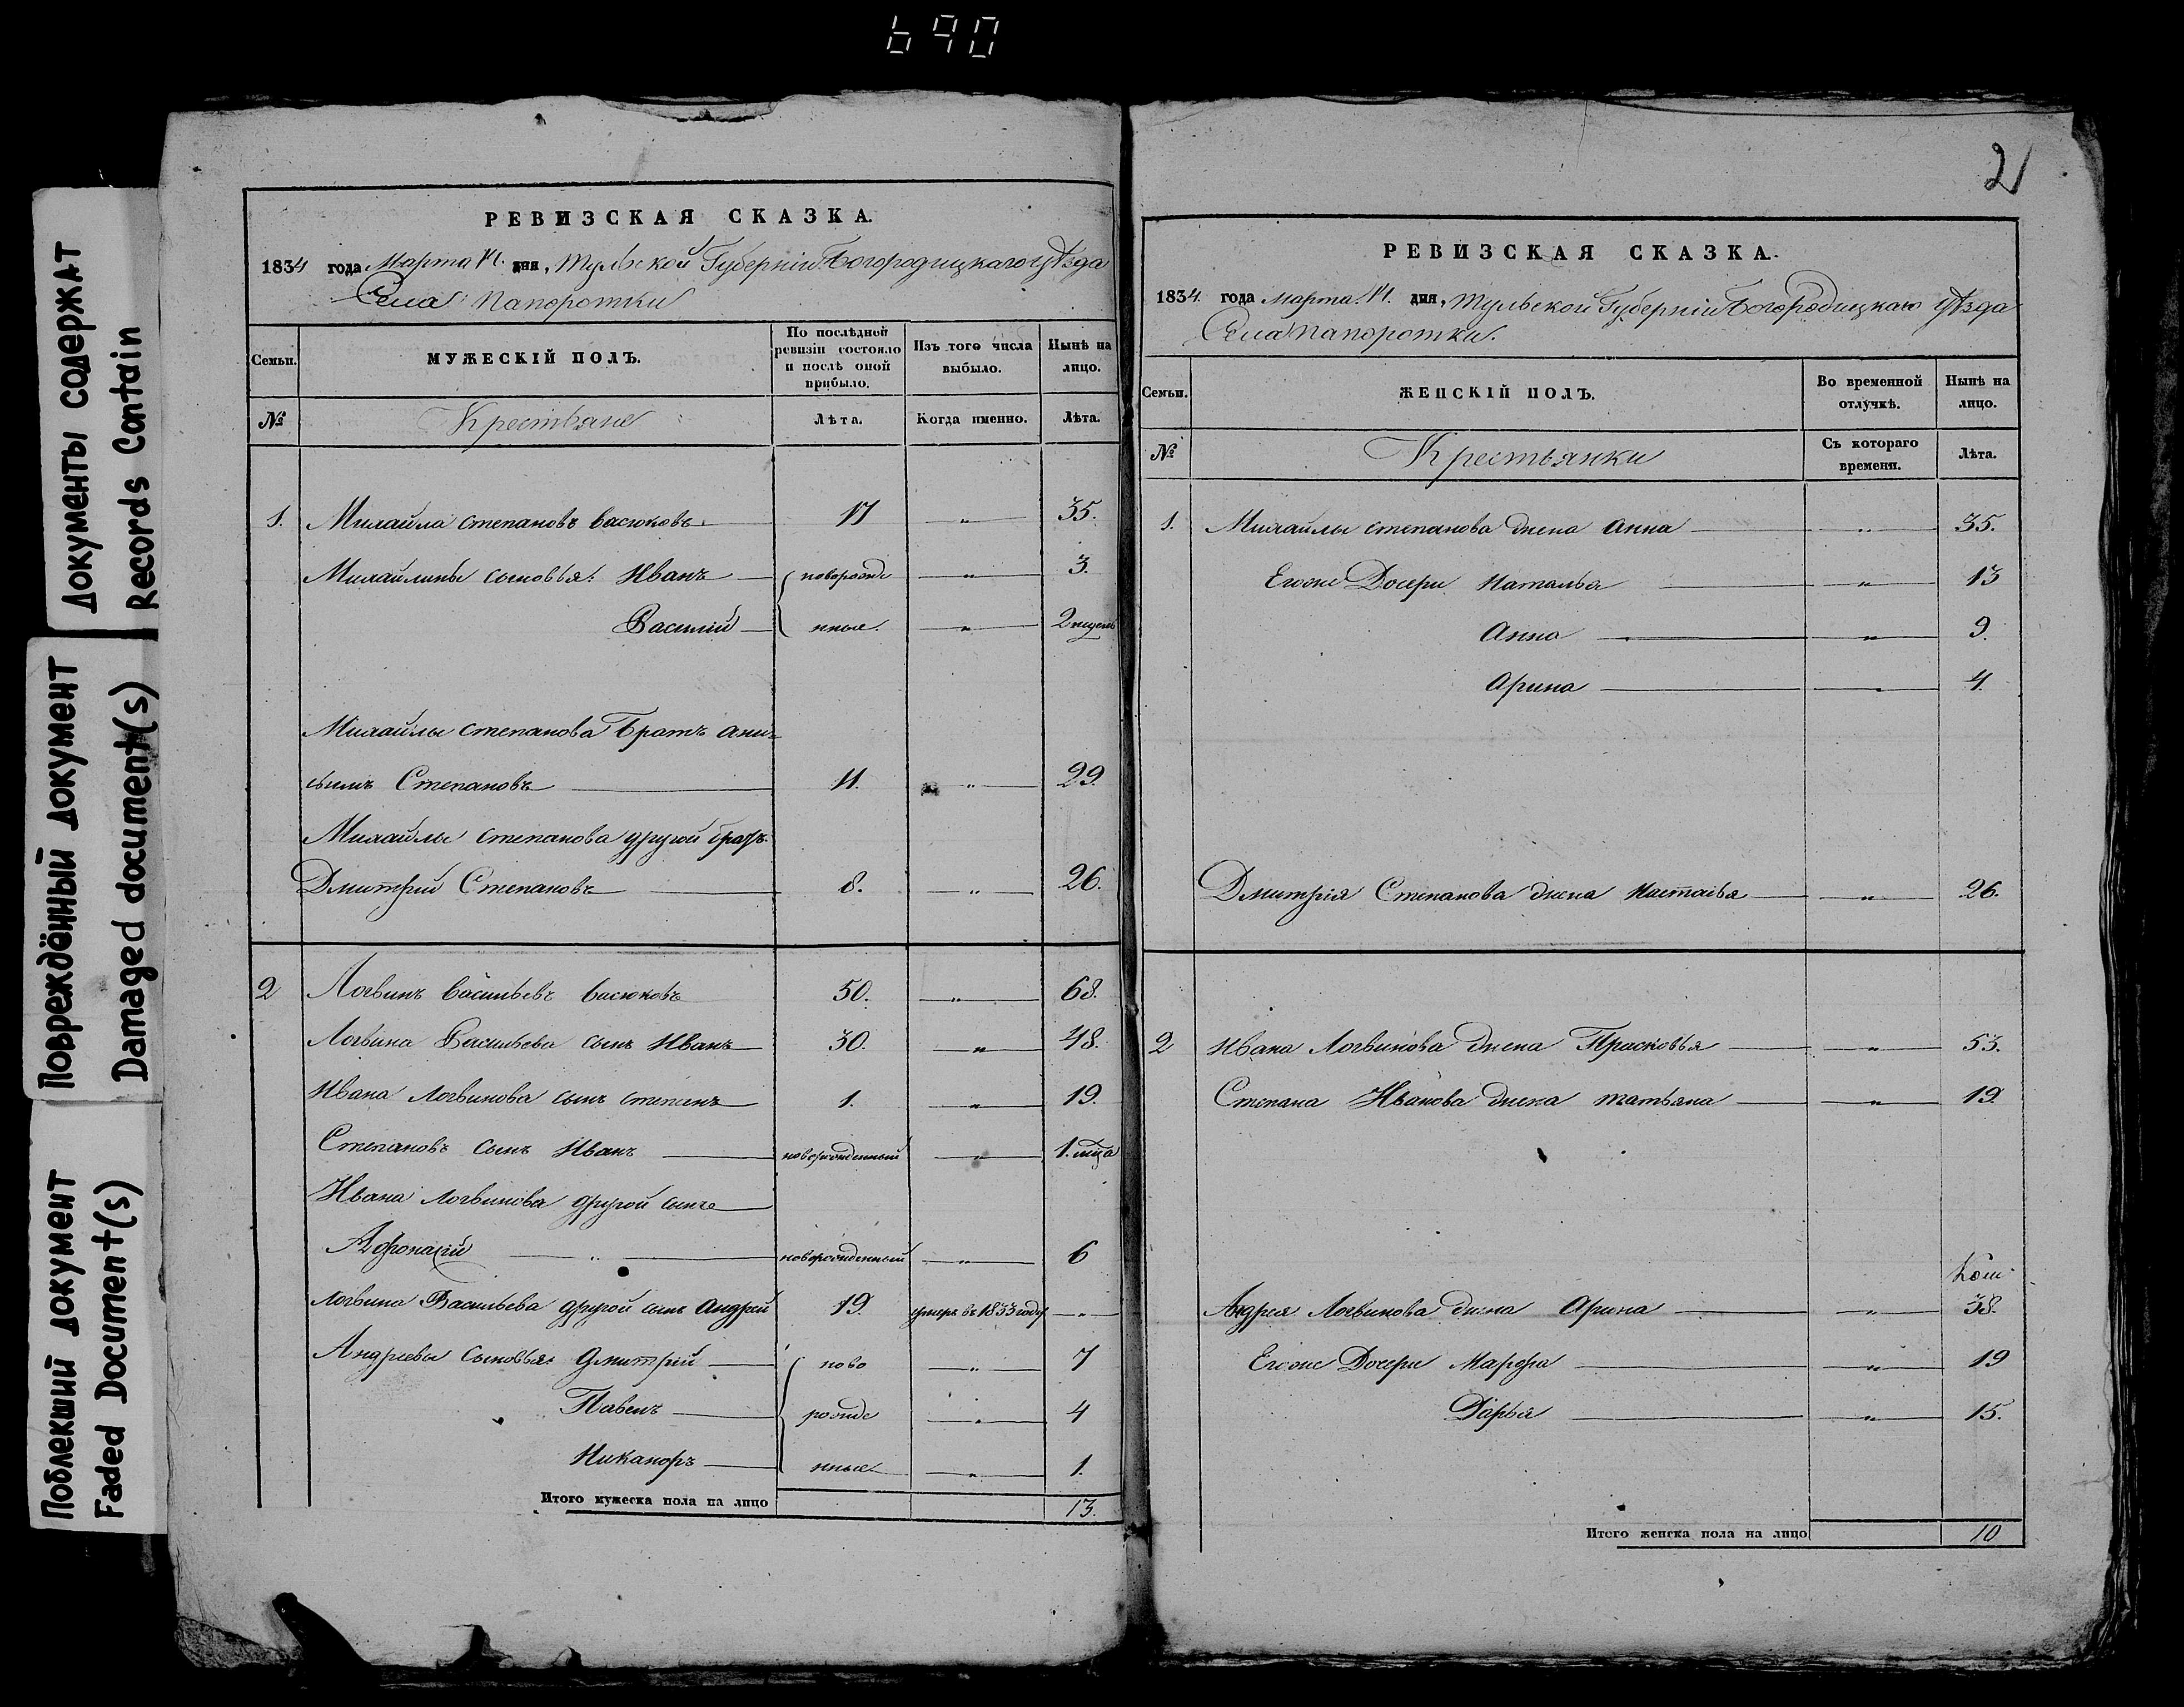 690
Документы содержат
Records Contain
Повреждённый документ
Damaged document(s)
Поблекший документ
Faded Document(s)
РЕВИЗСКАЯ СКАЗКА.
1834 года Марта дня, Тульской Губернiи Богородицкаго уѣзда
Села Папоротки
Семьи. МУЖЕСКIЙ ПОЛЪ. По послѣдней ревизiи состояло и послѣ оной прибыло. Изъ того числа выбыло. Нынѣ на лицо.
№ Крестьяне Лѣта. Когда именно. Лѣта.
1. Михайла степановъ васюковъ 17 " 35.
Михайлины сыновья: Иванъ новорожде " 3.
Василiй нные. " 2 недель
Михайлы степанова Братъ ани-
сымъ Степановъ 11. " 29.
Михайлы степанова другой братъ.
Дмитрiй Степановъ 8. " 26.
2 Логвинъ васильевъ васюковъ 50. " 68.
Логвина Васильева сынъ Иванъ 30. " 48.
Ивана Логвинова сынъ степанъ 1. " 19.
Степановъ сынъ Иванъ новорожденный " 1. мца
Ивана Логвинова другой сынъ
Афонасiй " новорожденный " 6
Логвина Васильева другой сынъ Андрей 19. умеръ въ 1833 году "
Андреевы сыновья: Дмитрiй ново " 7
Павелъ рожде " 4
Никаноръ нные " 1.
Итого мужеска пола на лицо 13.
2
РЕВИЗСКАЯ СКАЗКА.
1834. года марта. дня, Тульской Губернiи Богородицкаго уѣзда
Села Папоротки.
Семьи. ЖЕНСКIЙ ПОЛЪ. Во временной отлучкѣ. Нынѣ на лицо.
№ Крестьянки Съ котораго времени. Лѣта.
1. Михайлы степанова жена Анна " 35.
Егоже Дочери Наталья " 13
Анна " 9.
Арина " 4.
Дмитрiя Степанова жена Настасья " 26.
2 Ивана Логвинова жена Прасковья " 53.
Степана Иванова жена татьяна " 19.
Андрея Логвинова жена Арина " 38.
Егоже Дочери Марфа " 19
Дарья " 15.
Итого женска пола на лицо 10